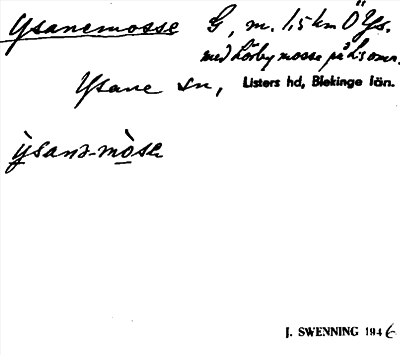 Ysanemosse G, m. 1,5 km Ö Ys.
med Lörby mosse på Ls omr.
Ysane sn, Listers hd, Blekinge län.
ỳsanə-mòsə
J. SWENNING 1946